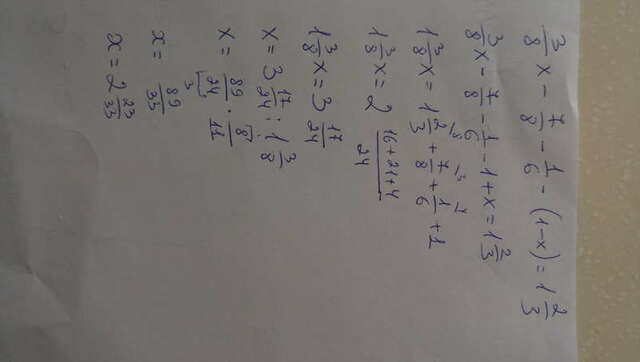 3/8 x - 7/8 - 1/6 - (1-x) = 1 2/3
3/8 x - 7/8 - 1/6 - 1 + x = 1 2/3
1 3/8 x = 1 2/3 + 7/8 + 1/6 + 1
1 3/8 x = 2 (16+21+4)/24
1 3/8 x = 3 17/24
x = 3 17/24 : 1 3/8
x = 89/24 : 11/8
x = 89/33
x = 2 23/33